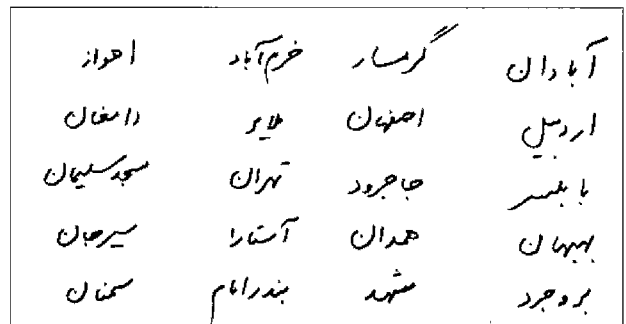 آبادان گرمسار خرم‌آباد اهواز
اردبیل اصفهان ملایر دامغان
بابلسر جاجرود تهران مسجدسلیمان
بهبهان همدان آستارا سیرجان
بروجرد مشهد بندرامام سمنان